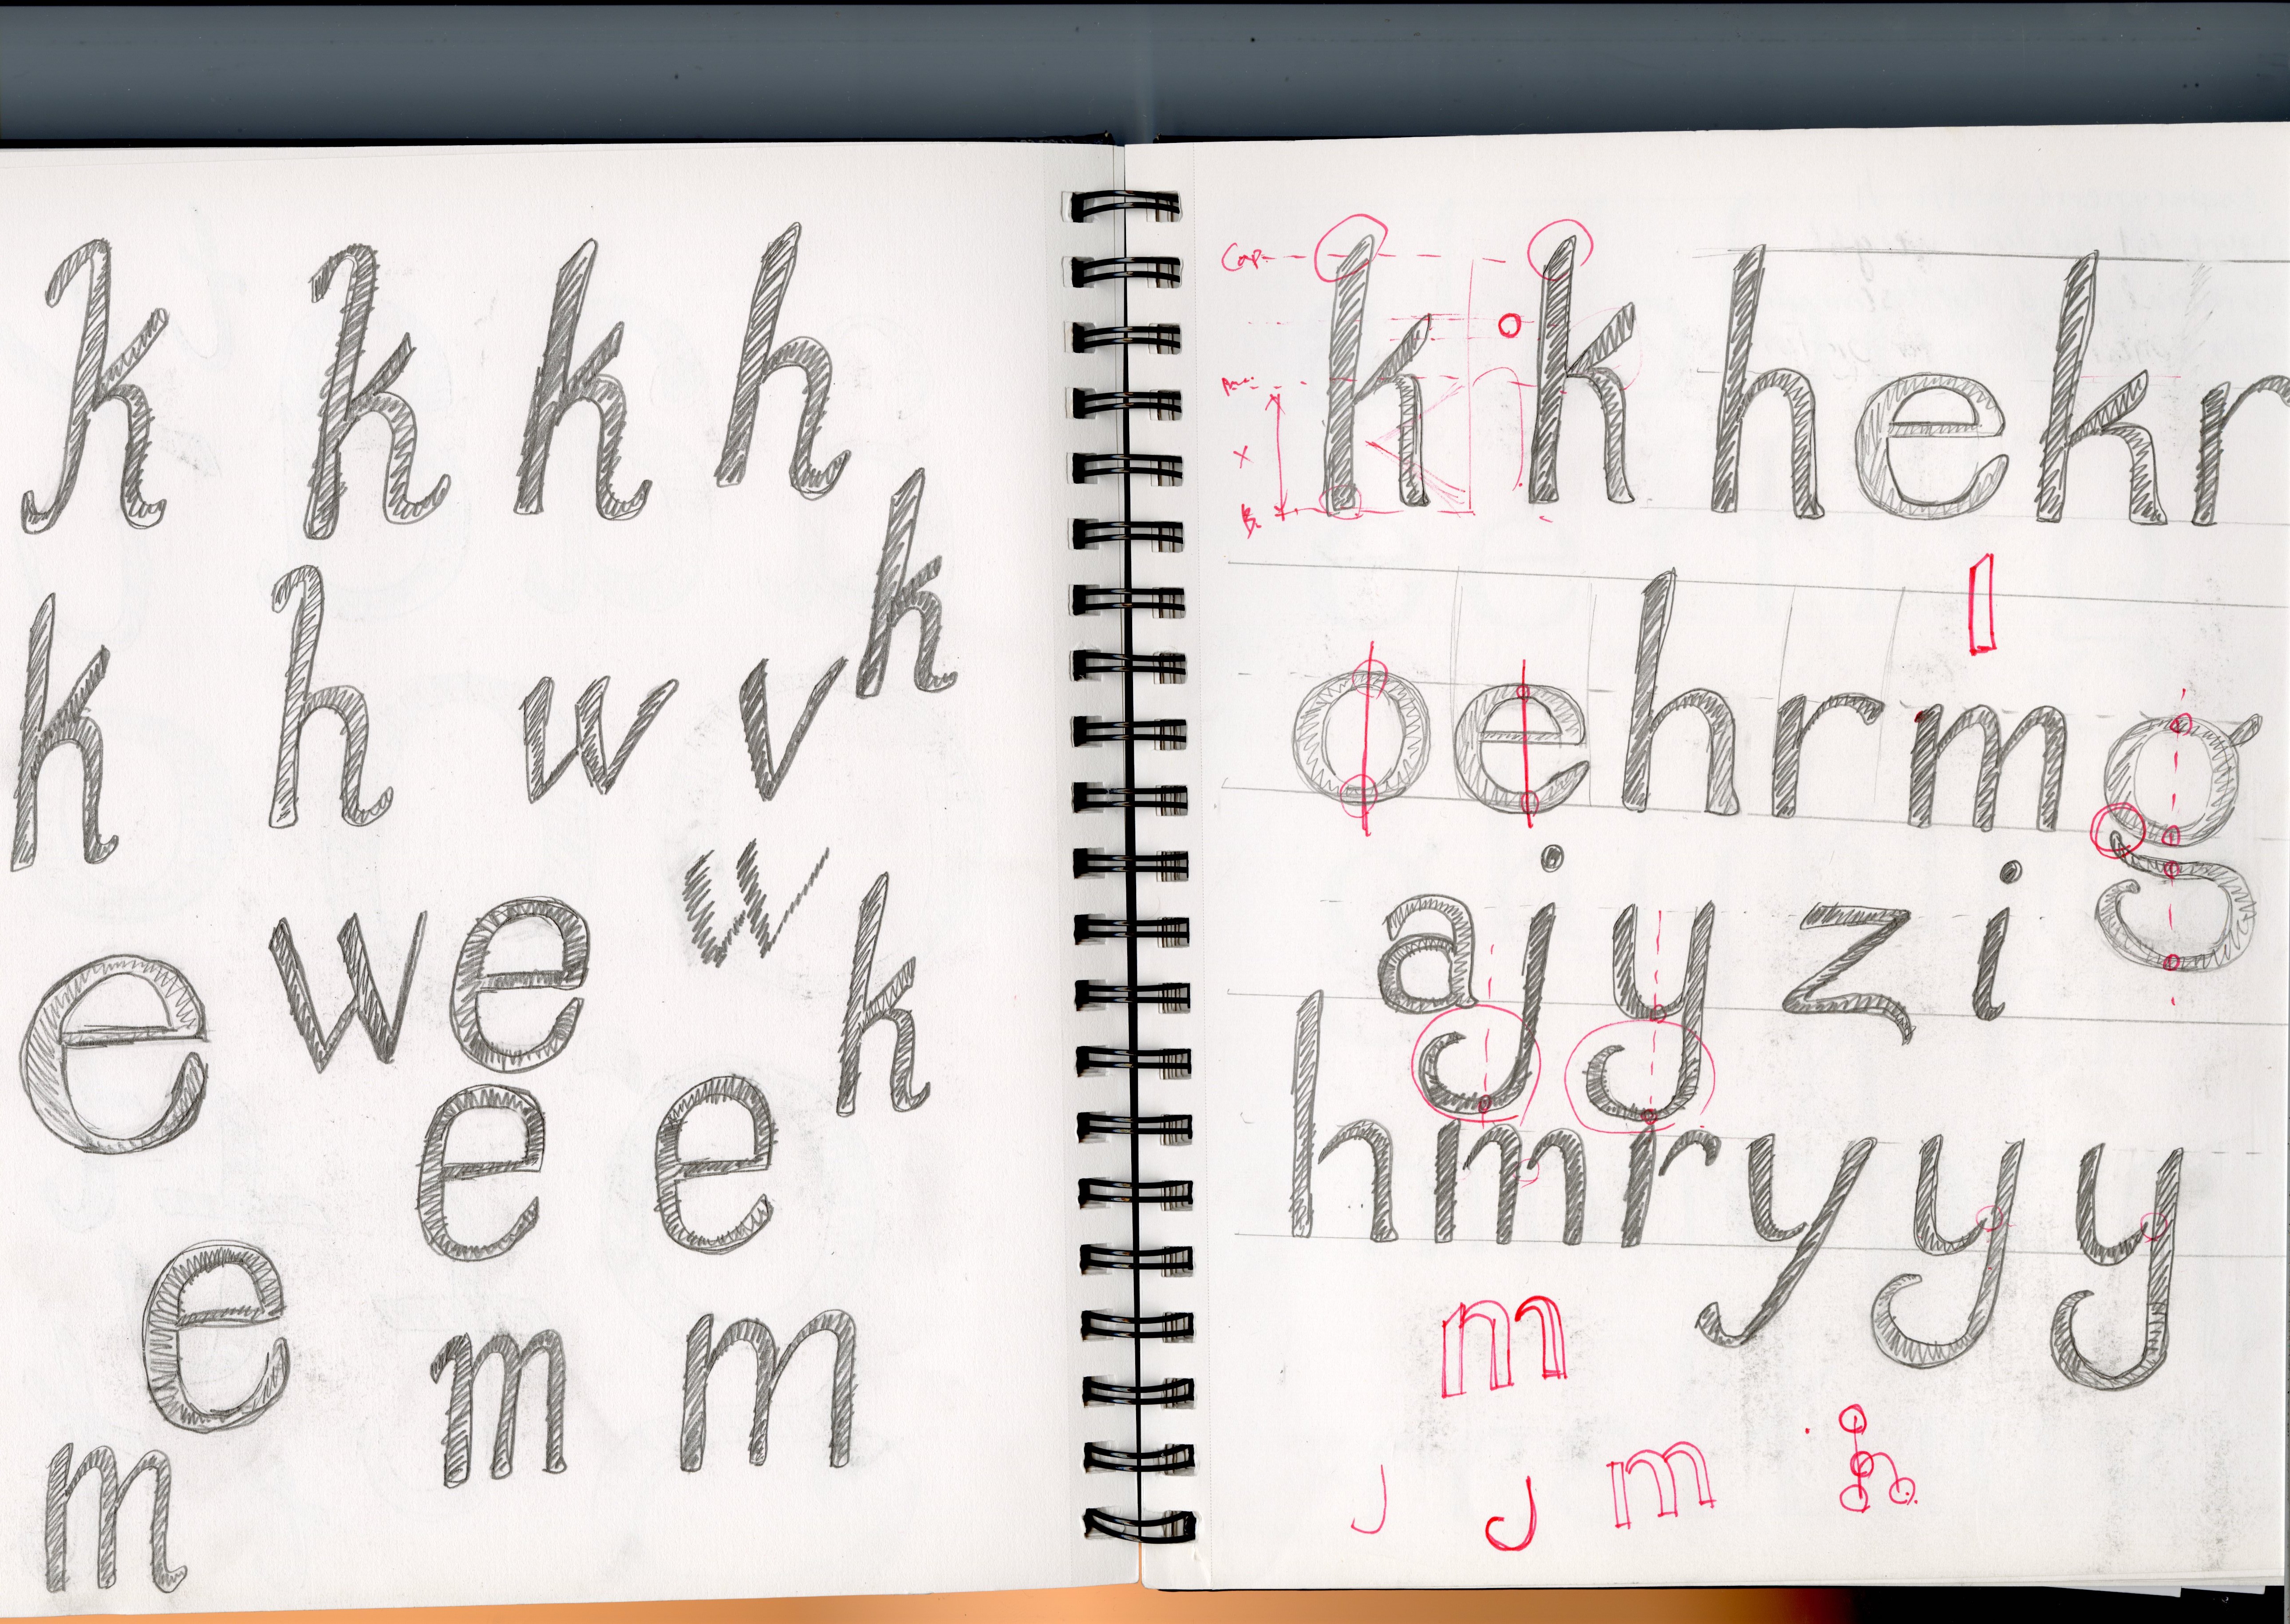 k k k h
k
k h w v
w
e w e k
e e
e m m
m
Cap
k k h e k r
x
B
o e h r m g
a j y z i
h m r y y y
m
J J m h